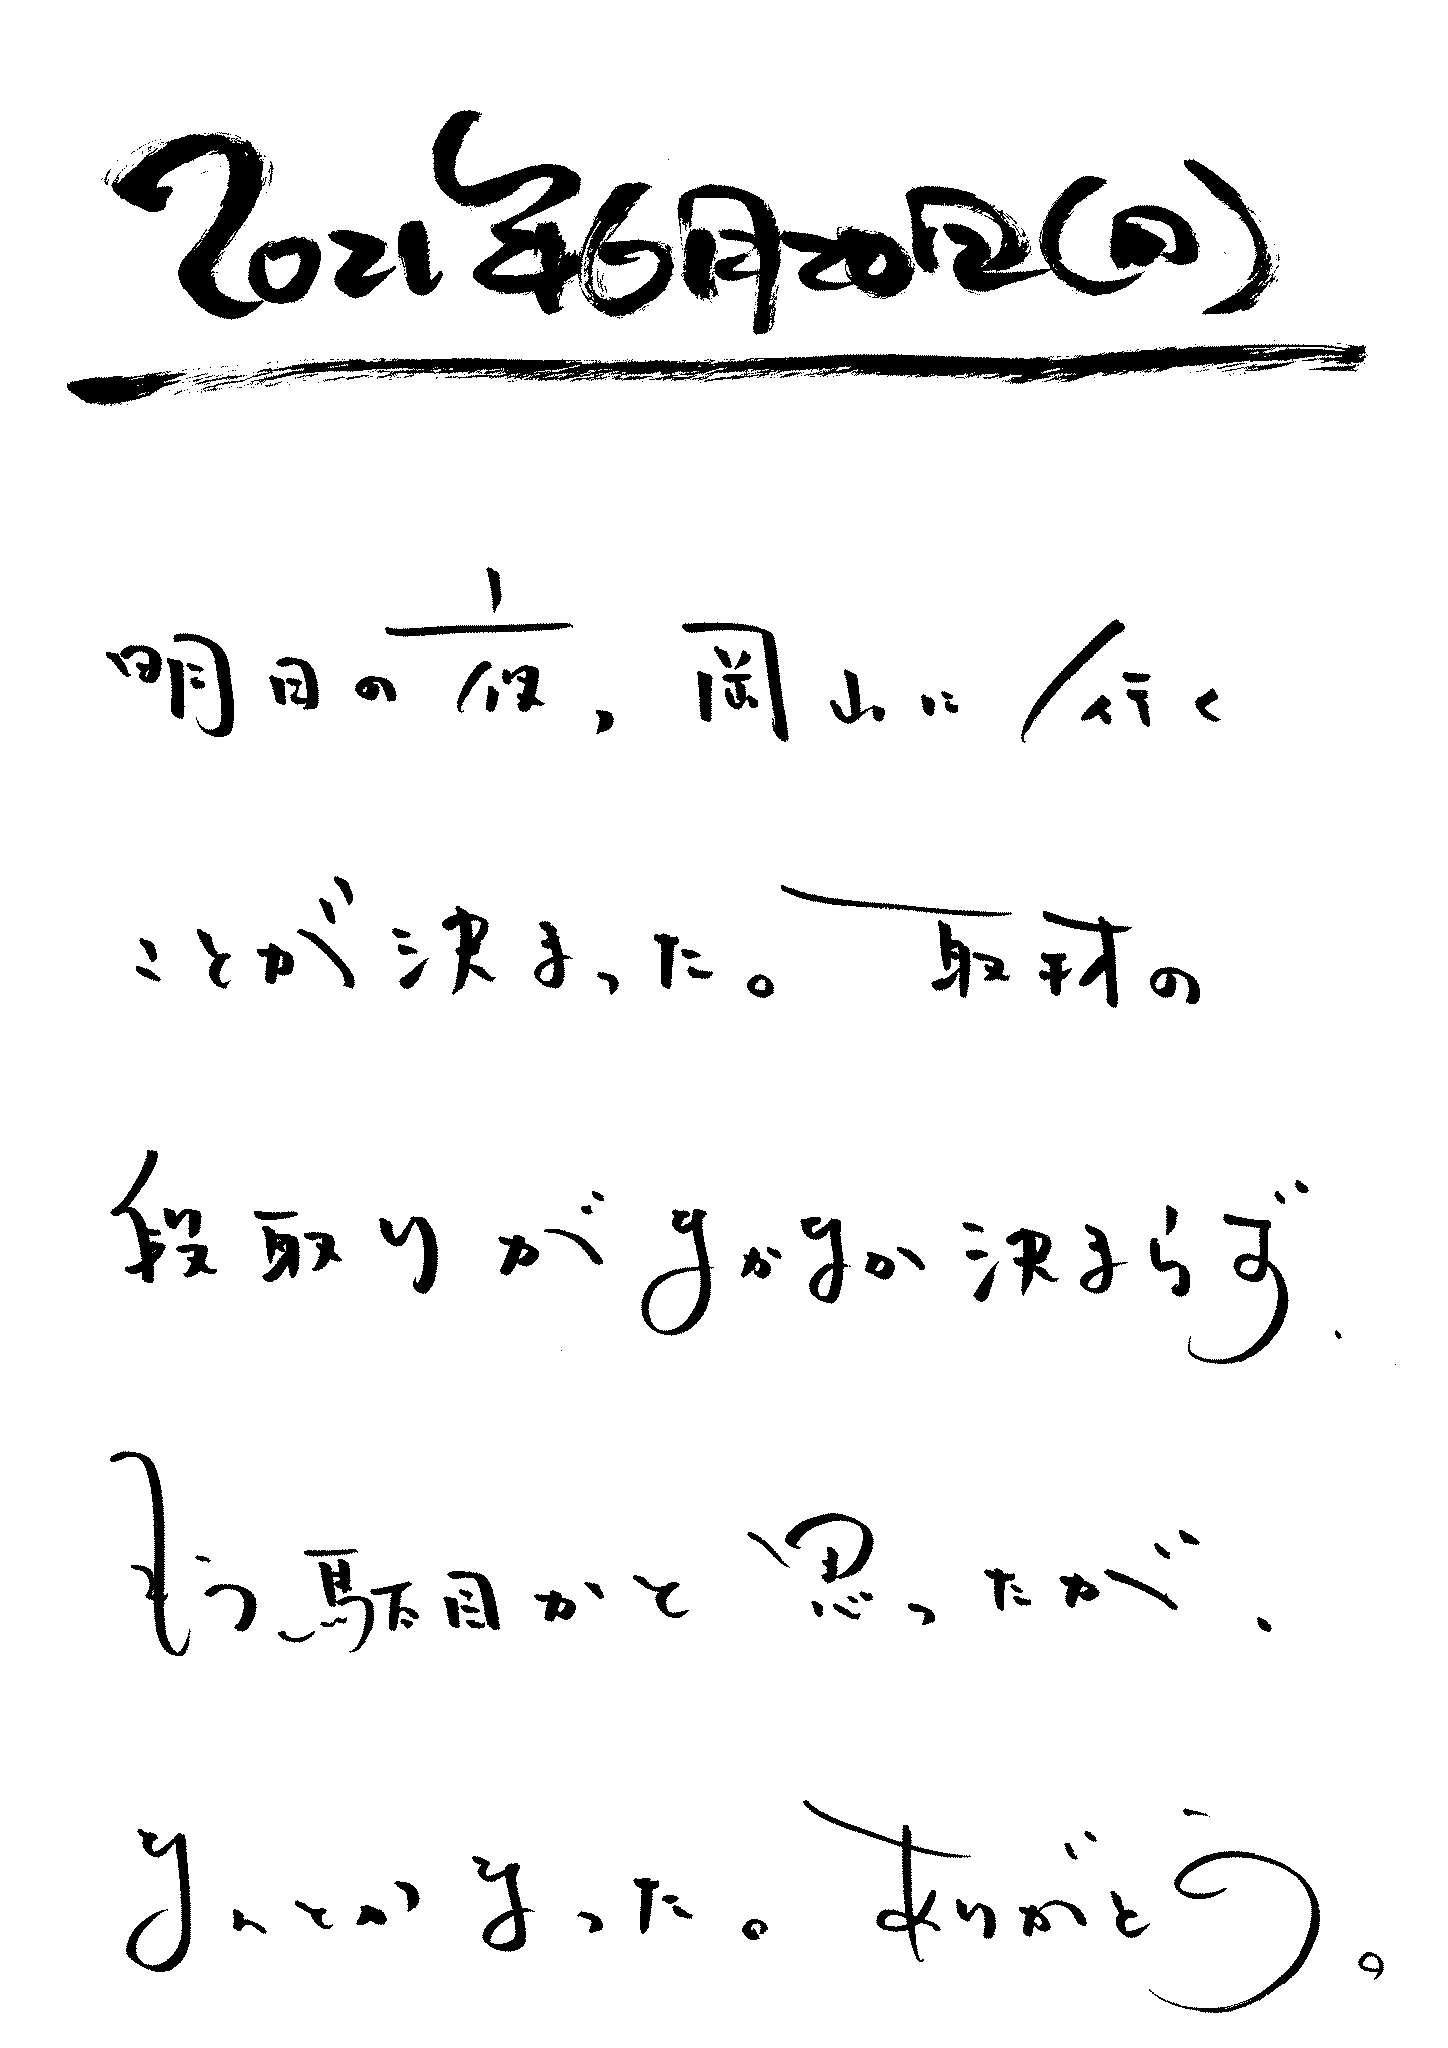 2021年6月20日(日)
明日の夜、岡山に行く
ことが決まった。取材の
段取りがなかなか決まらず、
もう駄目かと思ったが、
なんとかなった。ありがとう。